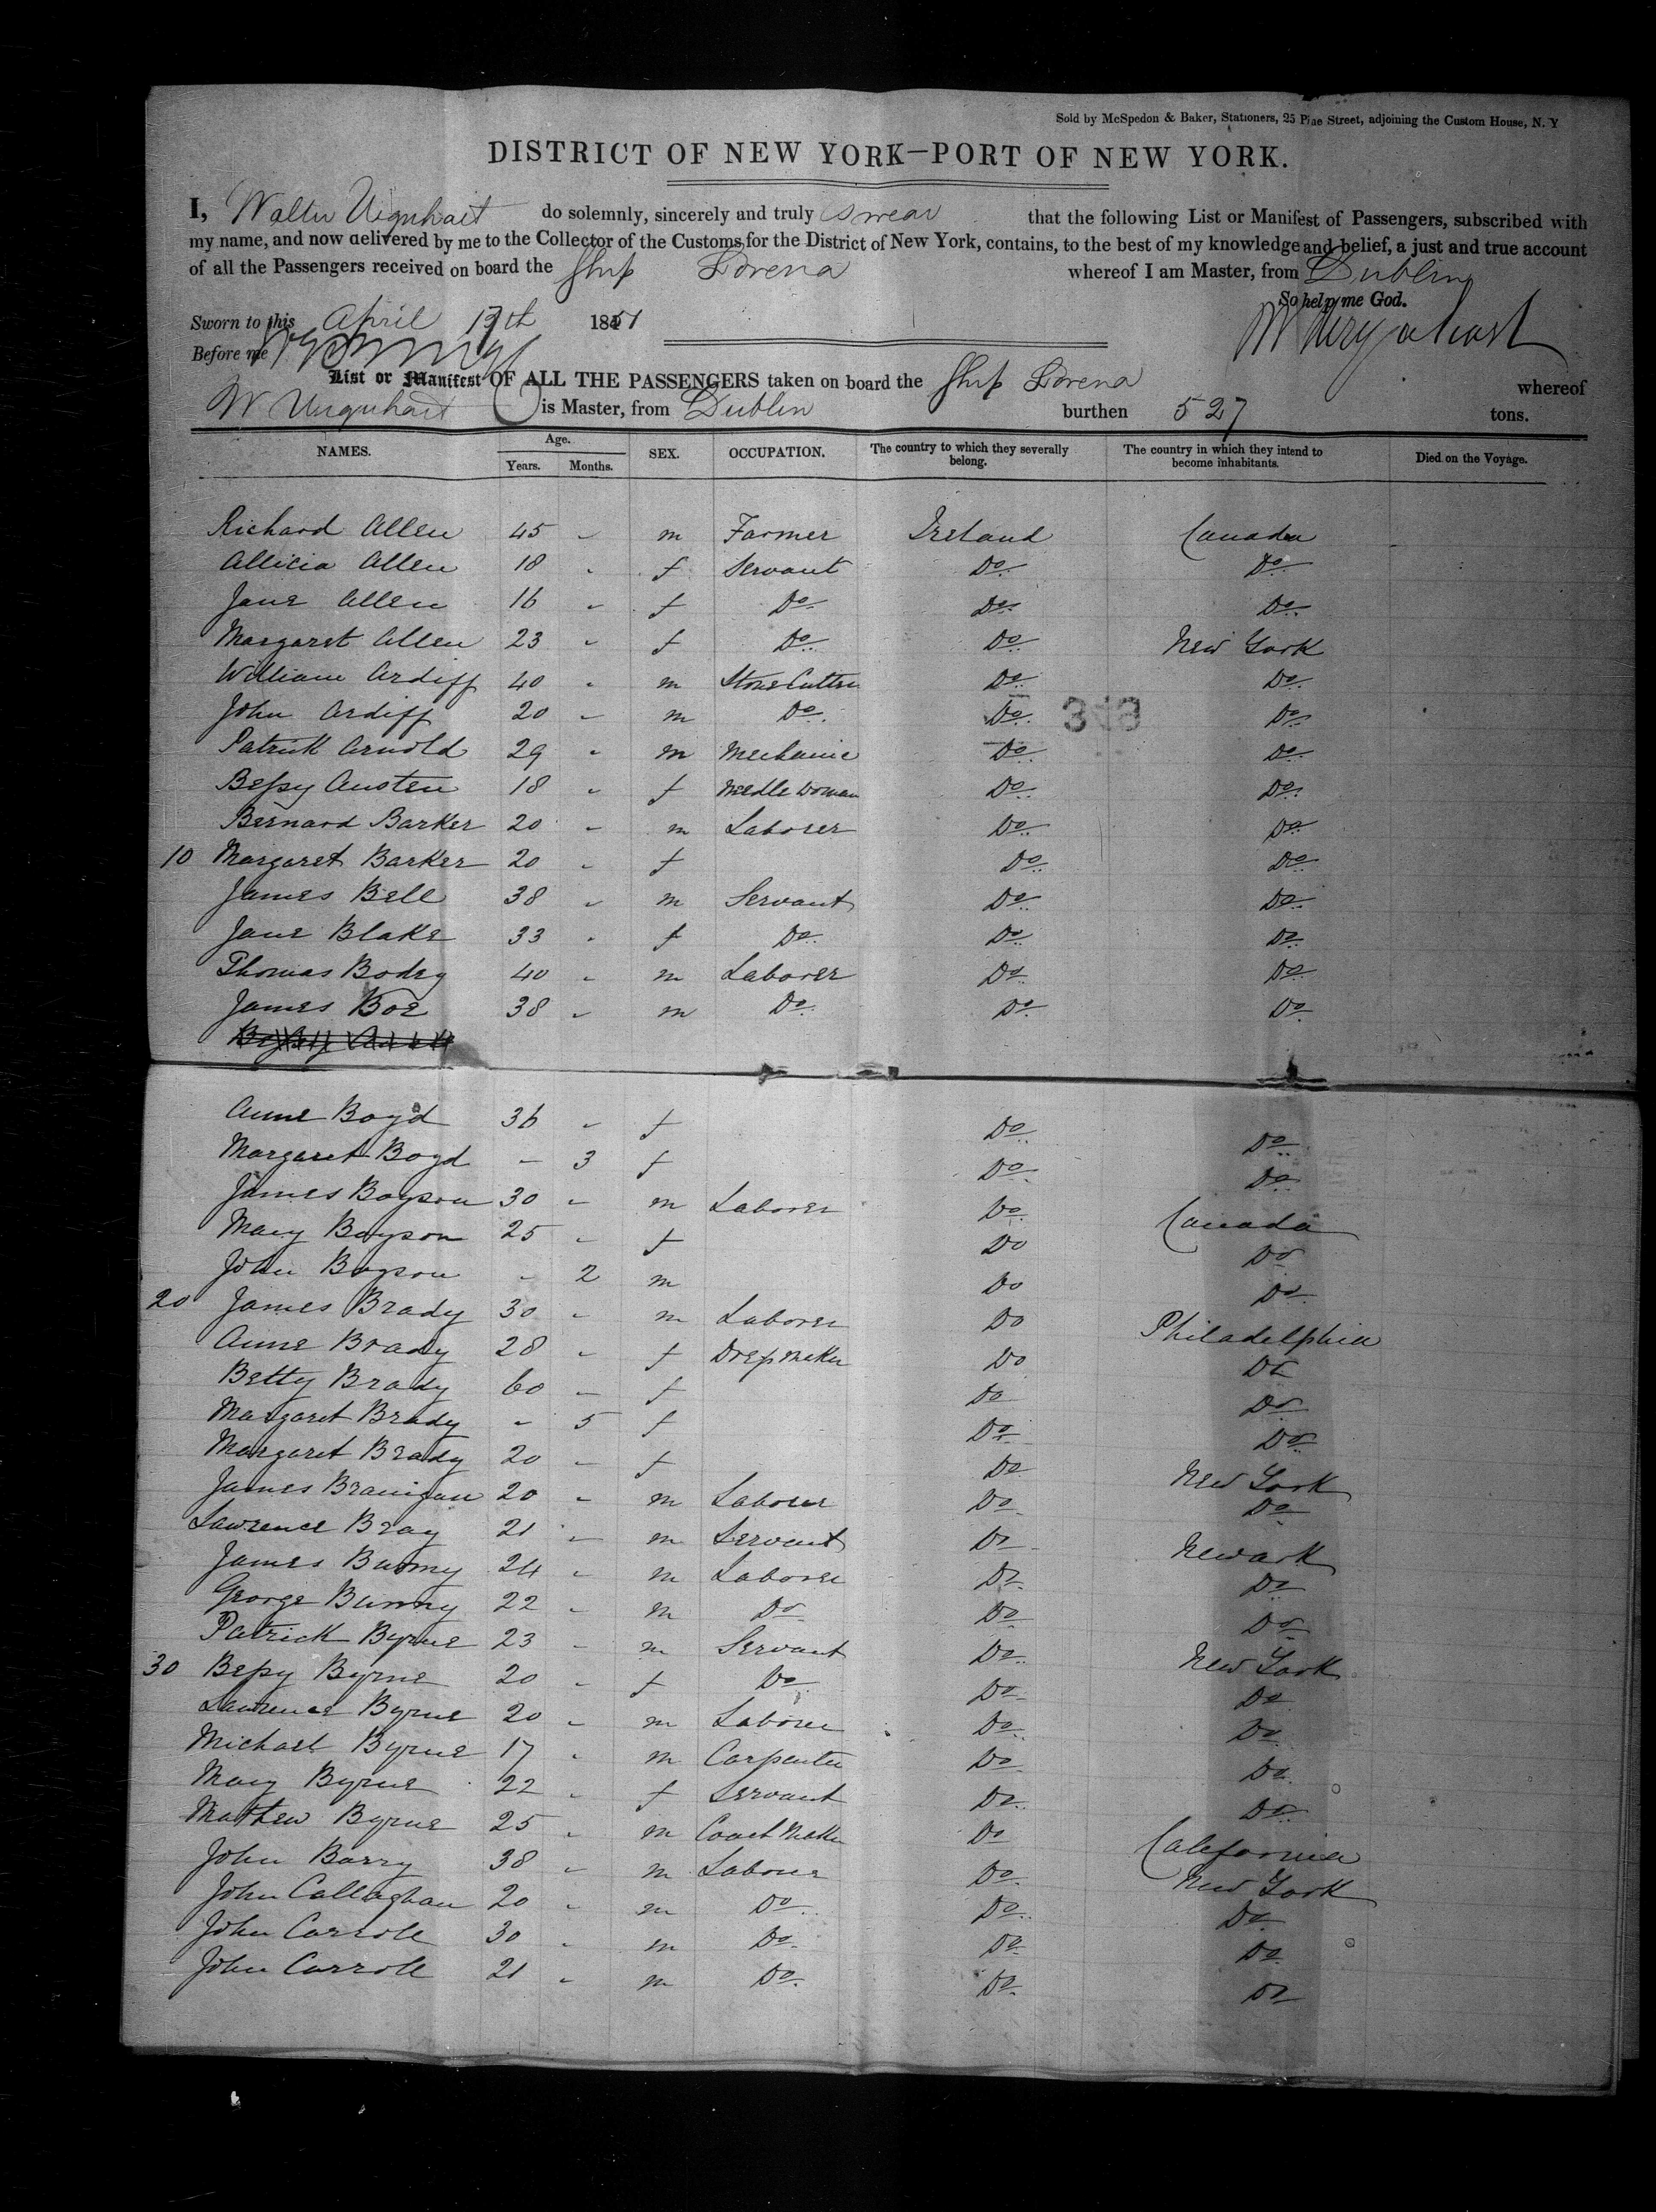 Sold by McSpedon & Baker, Stationers, 25 Pine Street, adjoining the Custom House, N. Y
DISTRICT OF NEW YORK—PORT OF NEW YORK.
I, Walter Urquhart do solemnly, sincerely and truly swear that the following List or Manifest of Passengers, subscribed with
my name, and now delivered by me to the Collector of the Customs for the District of New York, contains, to the best of my knowledge and belief, a just and true account
of all the Passengers received on board the Ship Lorena whereof I am Master, from Dublin
So help me God.
Sworn to this April 17th 1851
W Urquhart
Before me
List or Manifest OF ALL THE PASSENGERS taken on board the Ship Lorena whereof
W Urquhart is Master, from Dublin burthen 527 tons.
NAMES. Age. Years. Months. SEX. OCCUPATION. The country to which they severally belong. The country in which they intend to become inhabitants. Died on the Voyage.
Richard Allen 45 " m Farmer Ireland Canada
Allicia Allen 18 " f Servant Do Do
Jane Allen 16 " f Do Do Do
Margaret Allen 23 " f Do Do New York
William Ardiff 40 " m Stone Cutter Do Do
John Ardiff 20 " m Do Do 343 Do
Patrick Arnold 29 " m Mechanic Do Do
Bessy Austen 18 " f Needle Woman Do Do
Bernard Barker 20 " m Laborer Do Do
10 Margaret Barker 20 " f Do Do
James Bell 38 " m Servant Do Do
Jane Blake 33 " f Do Do Do
Thomas Bodey 40 " m Laborer Do Do
James Boe 38 " m Do Do Do
Anne Boyd 36 " f Do Do
Margaret Boyd " 3 f Do Do
James Boyson 30 " m Laborer Do Canada
Mary Boyson 25 " f Do Do
John Boyson " 2 m Do Do
20 James Brady 30 " m Laborer Do Philadelphia
Anne Brady 28 " f Dress Maker Do Do
Betty Brady 60 " f Do Do
Margaret Brady " 5 f Do Do
Margaret Brady 20 " f Do New York
James Branigan 20 " m Laborer Do Do
Lawrence Bray 21 " m Servant Do Newark
James Bunny 24 " m Laborer Do Do
George Bunny 22 " m Do Do Do
Patrick Byrne 23 " m Servant Do New York
30 Bessy Byrne 20 " f Do Do Do
Lawrence Byrne 20 " m Laborer Do Do
Michael Byrne 17 " m Carpenter Do Do
Mary Byrne 22 " f Servant Do Do
Mathew Byrne 25 " m Coach Maker Do California
John Barry 38 " m Laborer Do New York
John Callaghan 20 " m Do Do Do
John Carroll 30 " m Do Do Do
John Carroll 21 " m Do Do Do